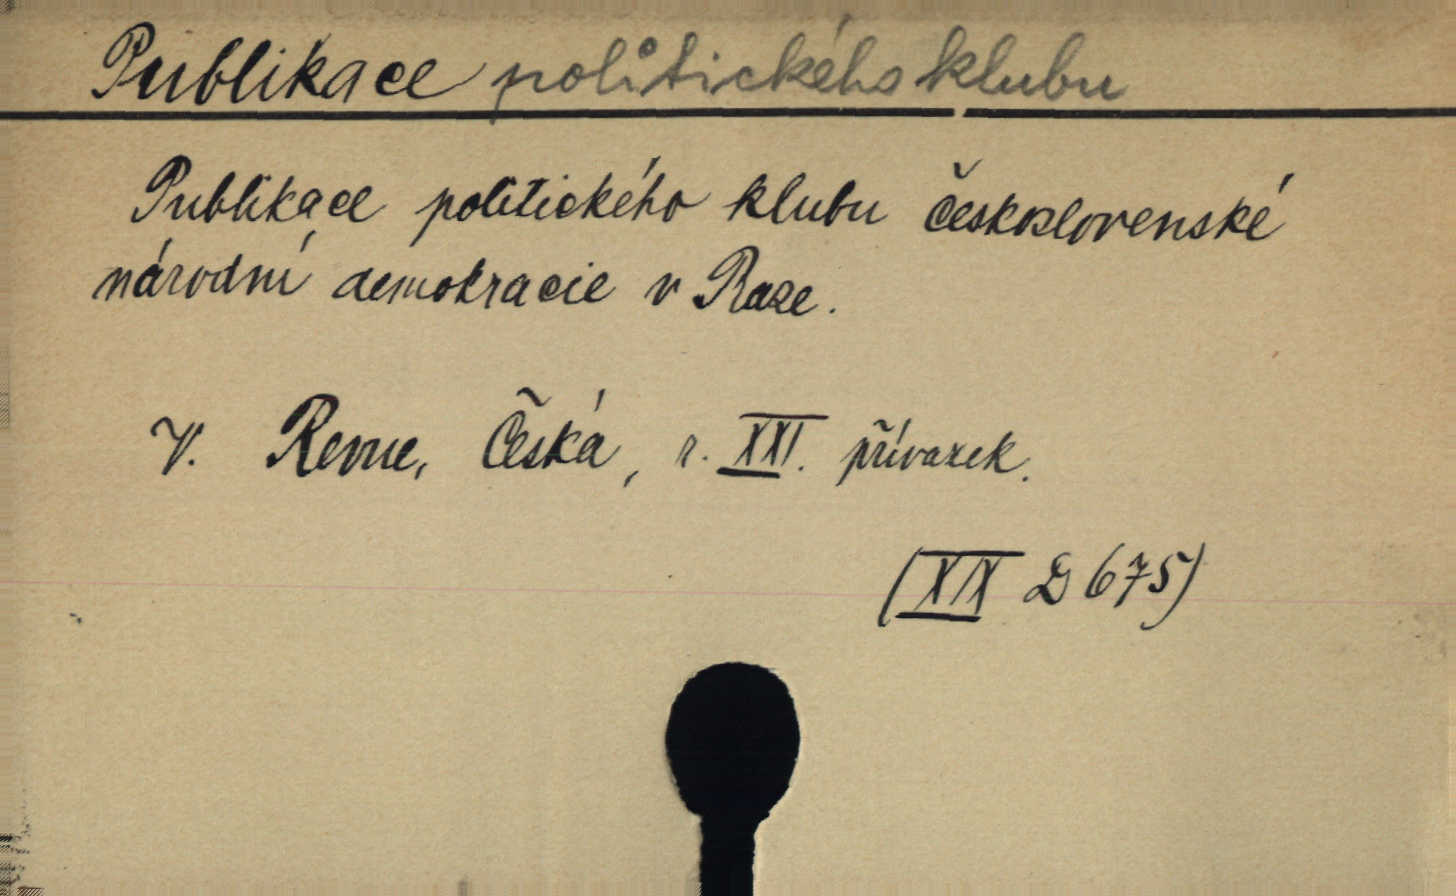 Publikace politického klubu
Publikace politického klubu československé
národní demokracie v Praze.
V. Revue, Česká, r. XXI. přívazek.
(XIX D 675)